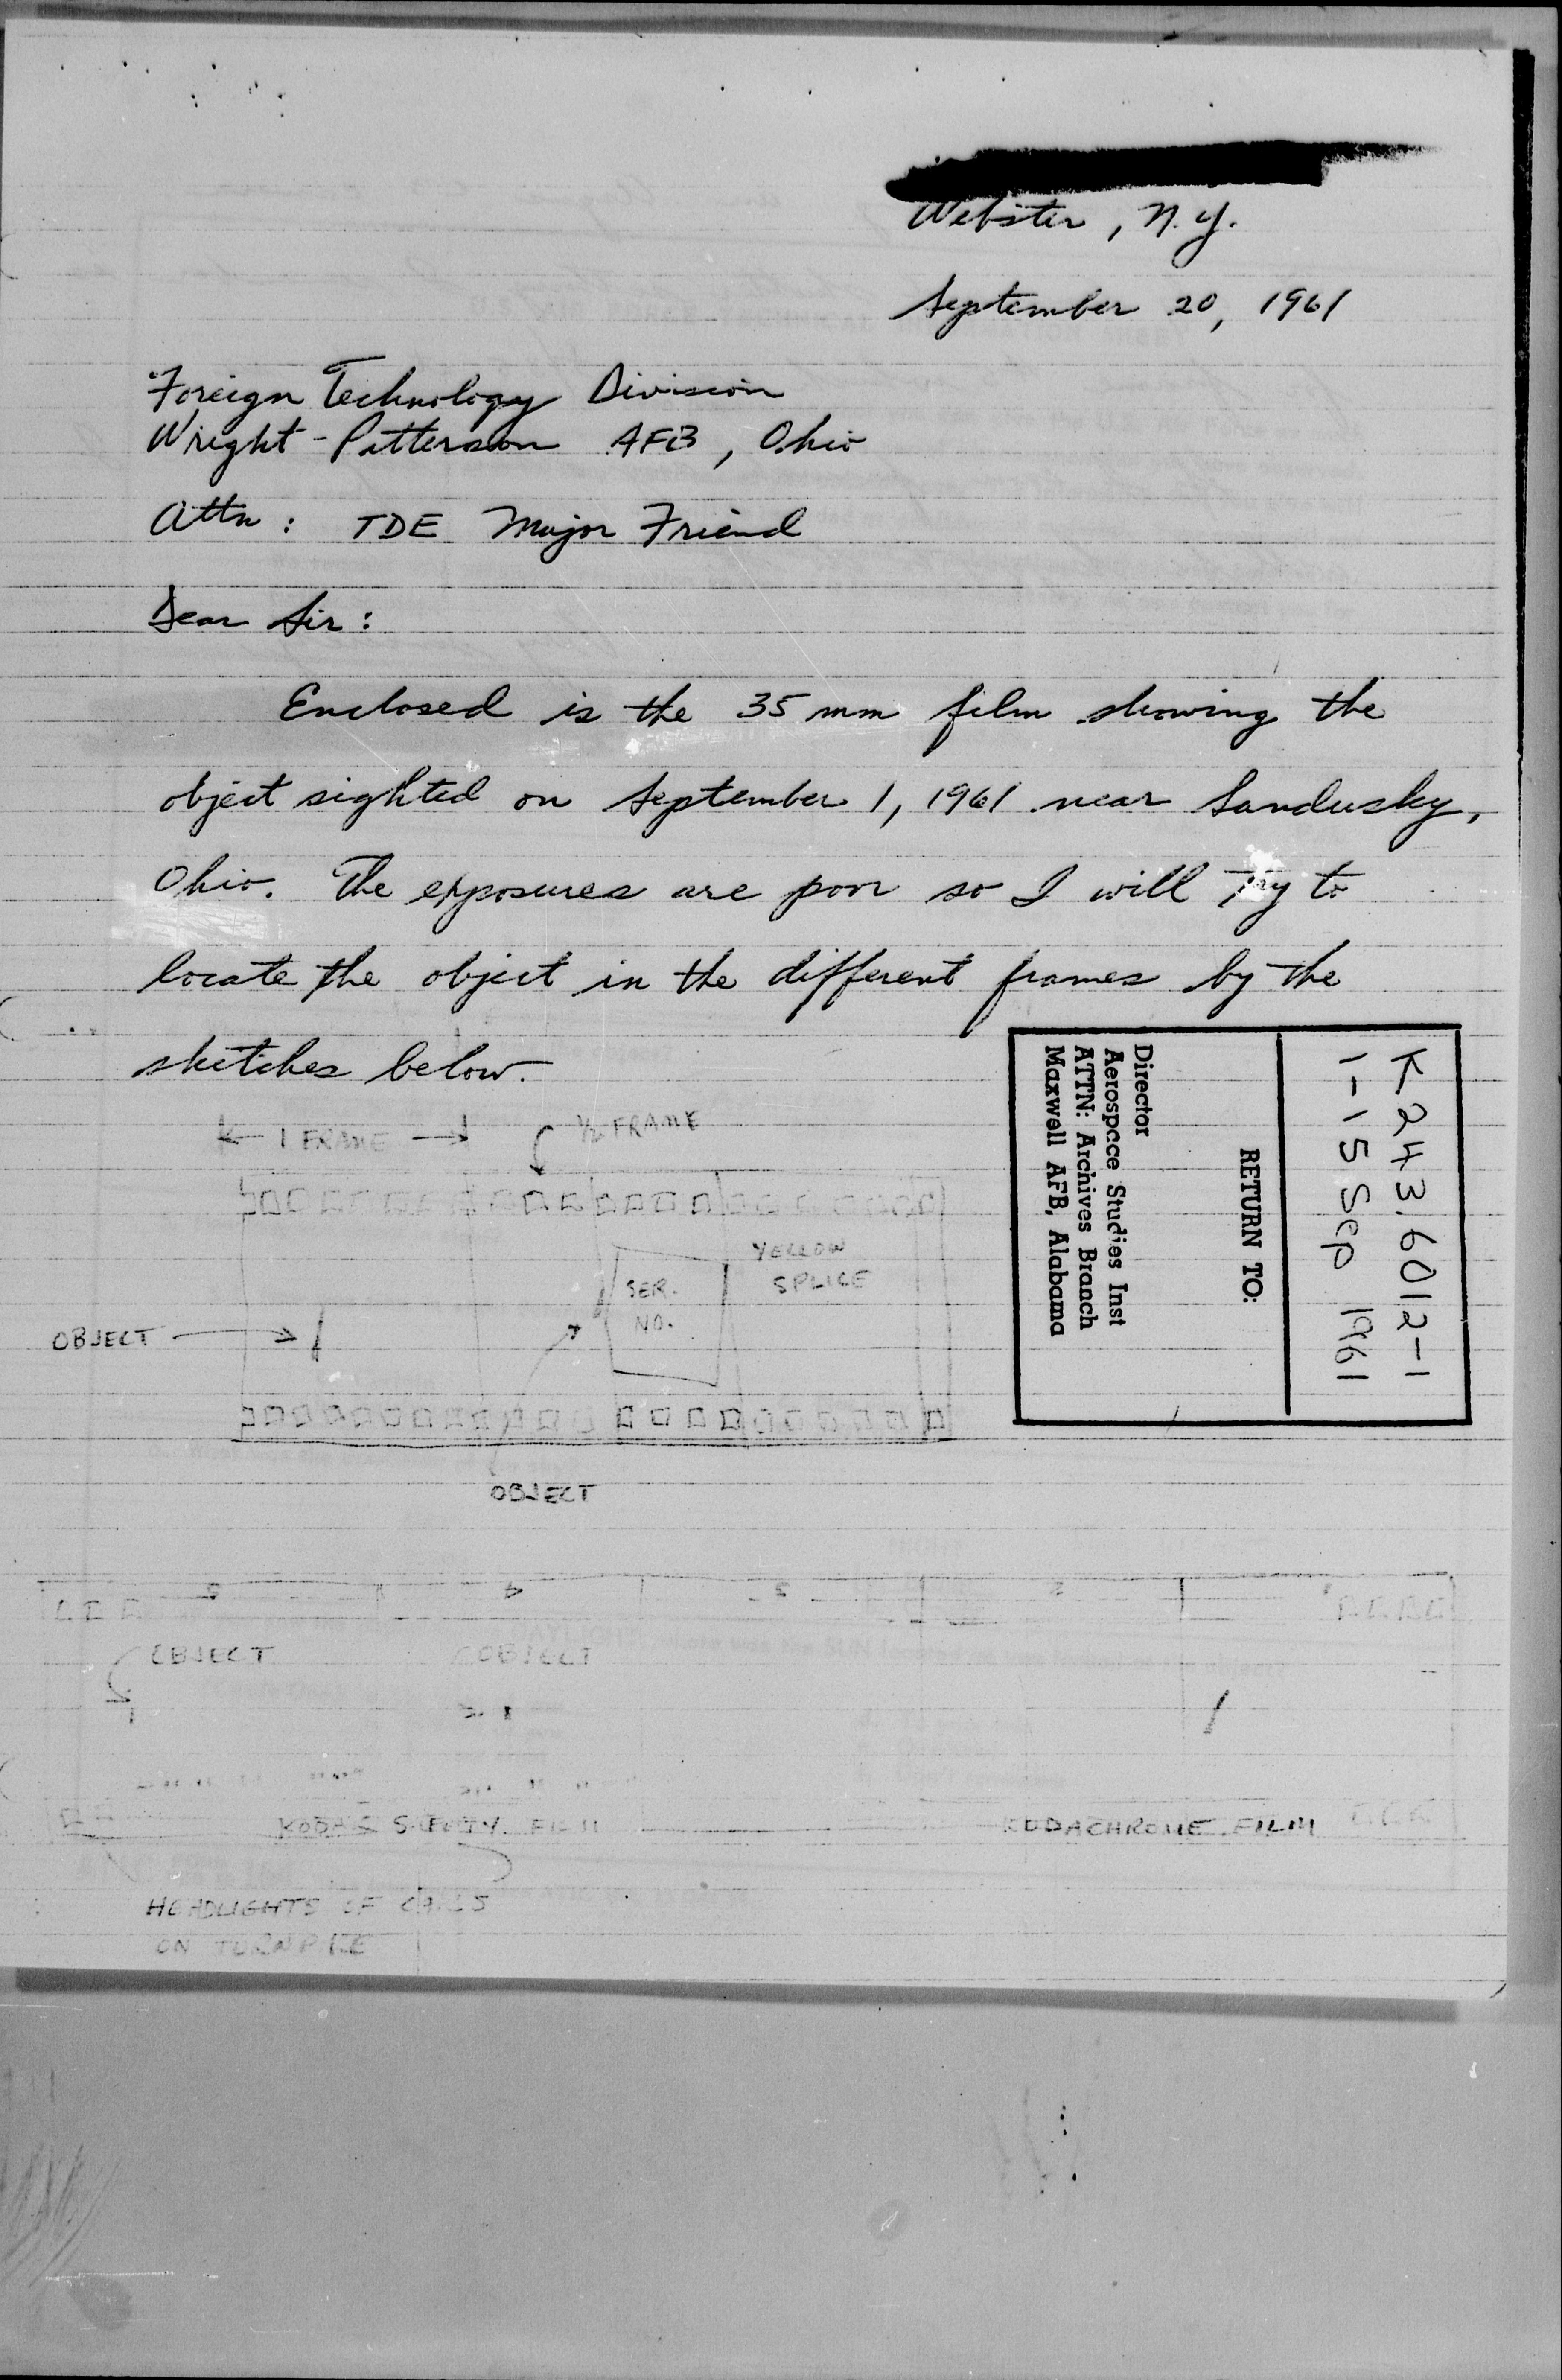 Webster, N.Y.
September 20, 1961
Foreign Technology Division
Wright-Patterson AFB, Ohio
Attn: TDE Major Friend
Dear Sir:
Enclosed is the 35 mm film showing the
object sighted on September 1, 1961 near Sandusky,
Ohio. The exposures are poor so I will try to
locate the object in the different frames by the
sketches below.
1 FRAME
1/2 FRAME
YELLOW
SPLICE
SER.
NO.
OBJECT
OBJECT
K243.6012-1
1-15 Sep 1961
RETURN TO:
Director
Aerospace Studies Inst
ATTN: Archives Branch
Maxwell AFB, Alabama
5 4 3 2
OBJECT OBJECT
KODAK SAFETY FILM KODACHROME FILM
HEADLIGHTS OF CARS
ON TURNPIKE